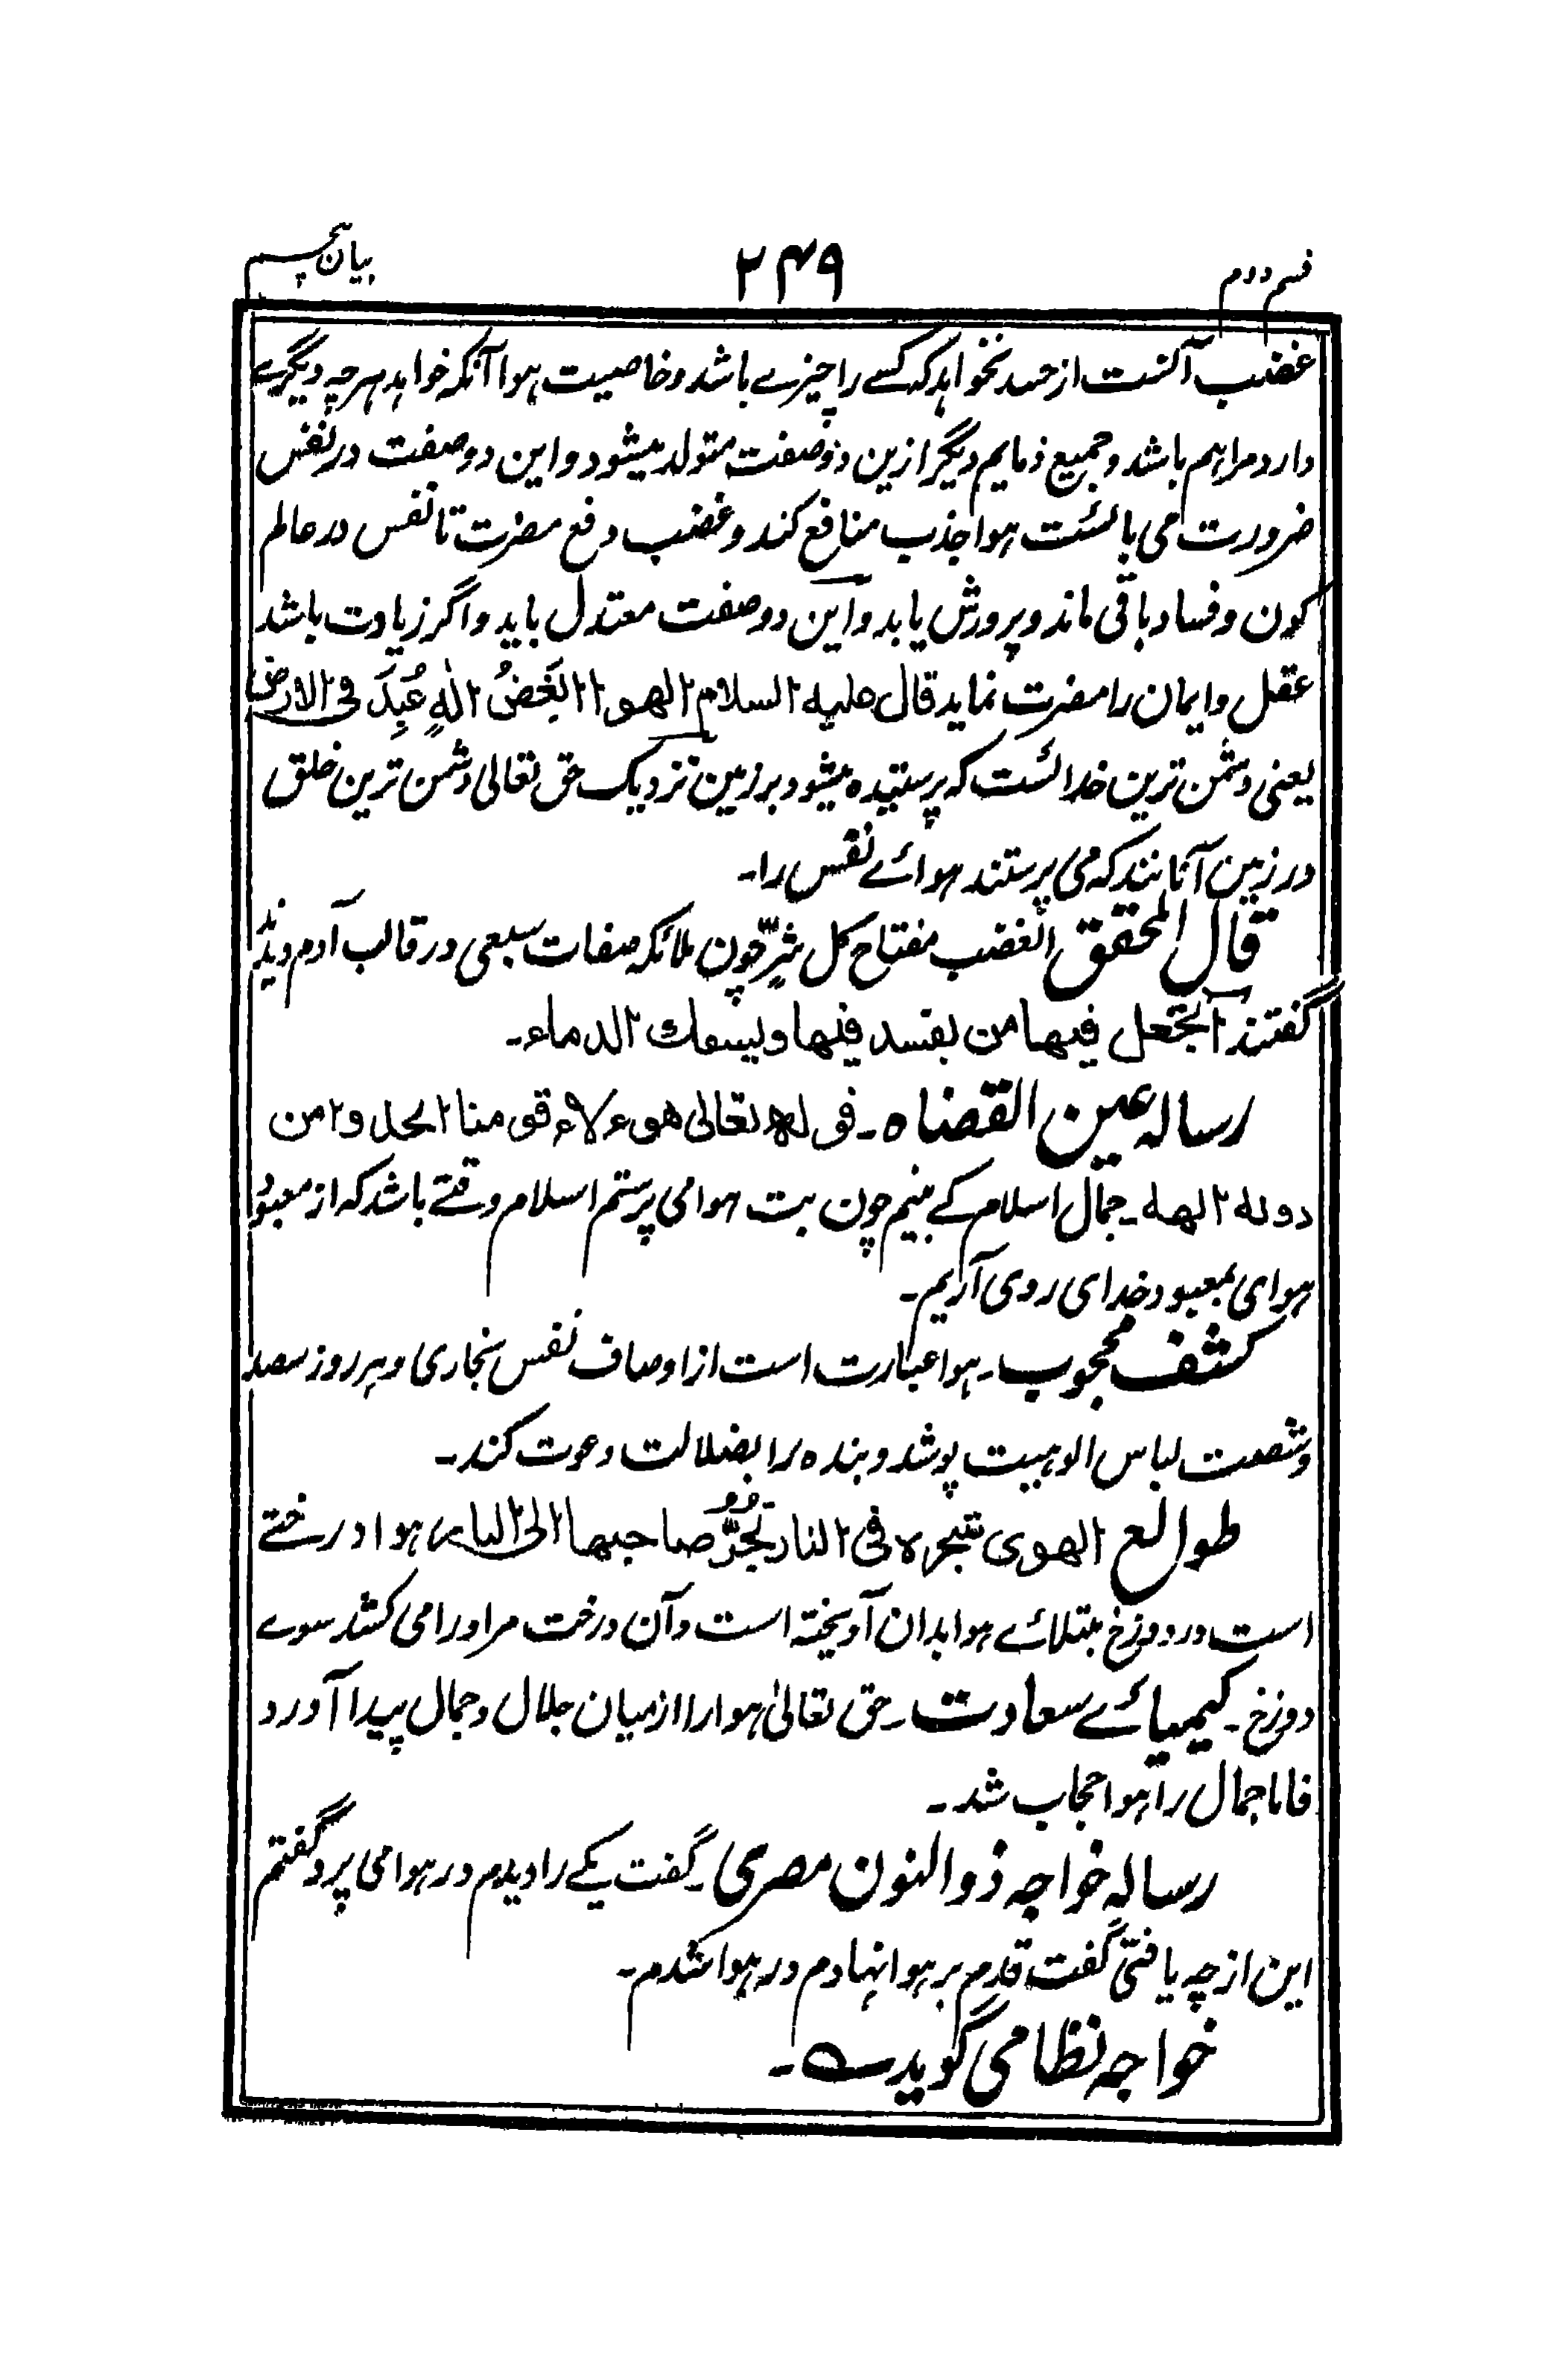 قسم دوم ۲۴۹ بیان پنجم
غضب آنست از حسد نخواهد که کسے را چیزے باشد و خاصیت ہوا آنکه خواہد ہرچه دیگرے
دارد مرا ہم باشد و جمیع ذمایم دیگر ازین دو صفت متولد میشود و این دو صفت در نفس
ضرورت می بائست ہوا جذب منافع کند و غضب دفع مضرت تا نفس در عالم
کون و فساد باقی ماند و پرورش یابد و این دو صفت معتدل باید و اگر زیادت باشد
عقل و ایمان را مضرت نماید قال علیه السلام الهوا ابغض اله عبد فی الارض
یعنی دشمن ترین خدائست که پرستیده میشود بر زمین نزدیک حق تعالی دشمن ترین خلق
در زمین آنانند که می پرستند ہوائے نفس را۔
قال المحقق الغضب مفتاح کل شرّ چون ملائکه صفات سبعی در قالب آدم دیدند
گفتند أتجعل فیها من یفسد فیها ویسفك الدماء۔
رساله عین القضاه۔ قوله تعالی هؤلاء قومنا اتخذوا من
دونه الهه۔ جمال اسلام کے بینیم چون بت ہوا می پرستم اسلام وقتے باشد که از معبود
ہوای بمعبود خدای روی آریم۔
کشف محجوب۔ ہوا عبارت است از اوصاف نفس بخاری و ہر روز سصد
و شصت لباس الوہیت پوشد و بنده را بضلالت دعوت کند۔
طوالع الهوی شجره فی النار تجرّ صاحبها الی النار ہوا درختے
است در دوزخ مبتلائے ہوا بدان آویخته است و آن درخت مر او را می کشد سوے
دوزخ۔ کیمیائے سعادت۔ حق تعالیٰ ہوا را از میان جلال و جمال پیدا آورد
فاما جمال را ہوا حجاب شد۔
رساله خواجه ذوالنون مصری۔ گفت یکے را دیدم در ہوا می پرد گفتم
این از چه یافتی گفت قدم بر ہوا نهادم در ہوا شدم۔
خواجه نظامی گوید ؎۔